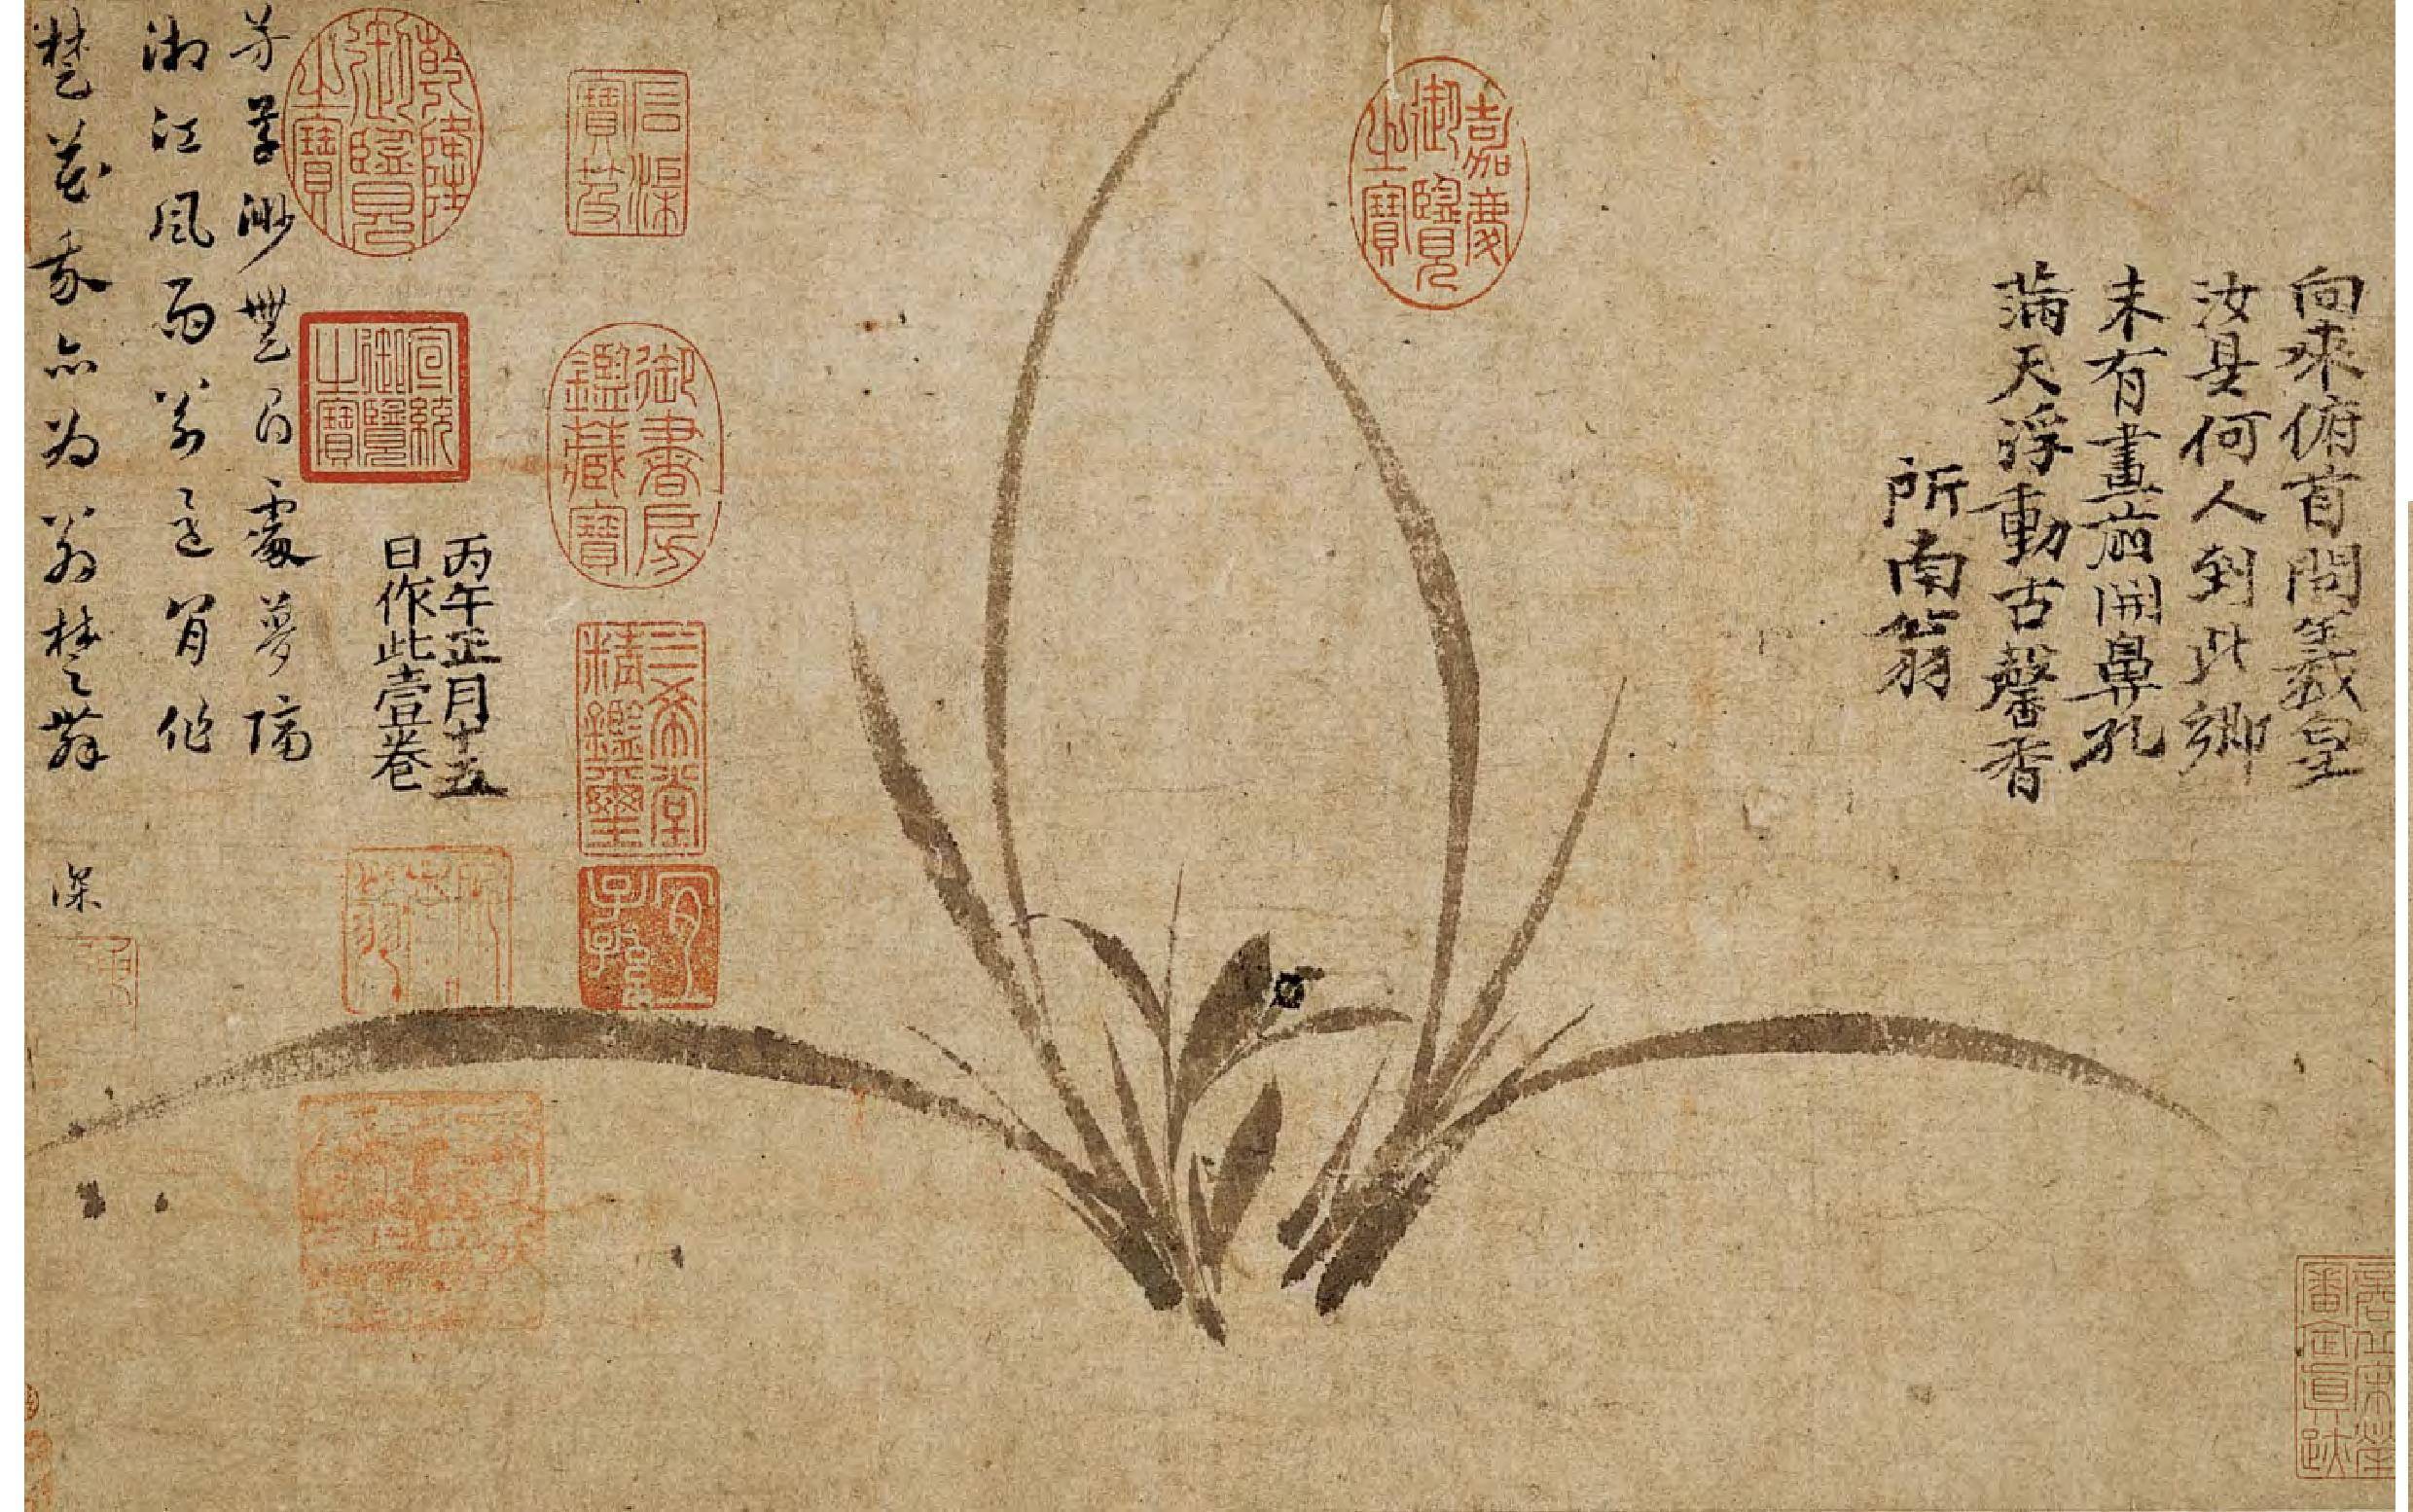 嘉慶御覽之寶
向來俯首問羲皇
汝是何人到此鄉
未有畫前開鼻孔
滿天浮動古馨香
所南翁
商丘宋犖審定真跡
石渠寶笈
御書房鑑藏寶
三希堂精鑑璽
宜子孫
乾隆御覽之寶
宣統御覽之寶
丙午正月十五
日作此壹卷
所南翁
芳草渺無尋處夢隔
湘江風雨翁還肯作
楚花我亦為翁楚舞
深